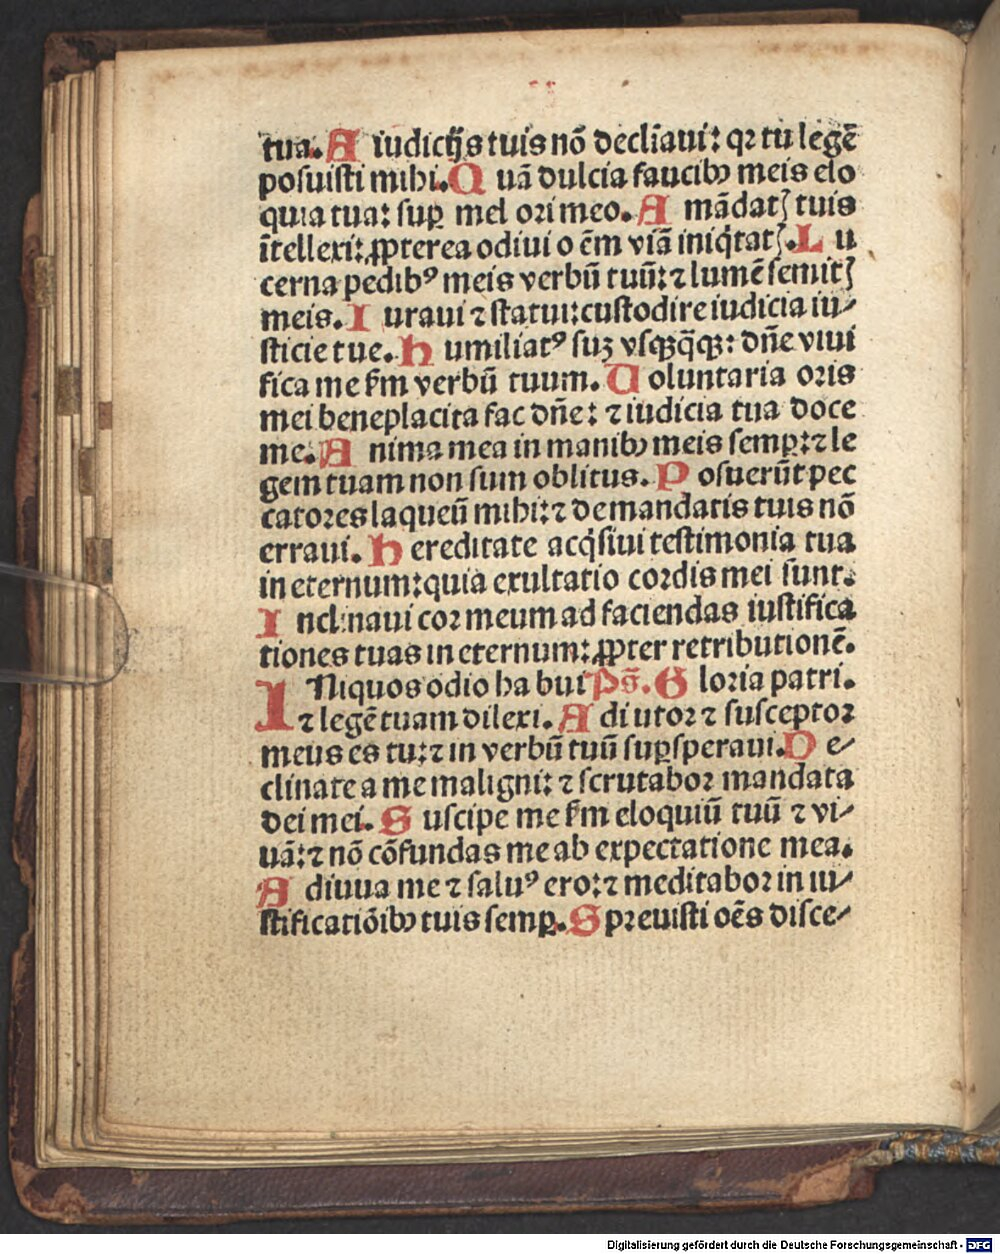 tua. A iudicijs tuis nō decliaui: qꝛ tu legē
posuisti mihi. Q uā dulcia faucibꝰ meis elo
quia tua: suꝑ mel oꝛi meo. A mādatꝭ tuis
ītellexi: ꝓpterea odiui oēm viā iniq̇tatꝭ. L u
cerna pedibꝰ meis verbū tuū: ⁊ lumē semitꝭ
meis. I uraui ⁊ statui: custodire iudicia iu⸗
sticie tue. H umiliatꝰ suꝫ vsqꝫq̄qꝫ: dn̄e viui
fica me ẜm verbū tuum. U oluntaria oꝛis
mei beneplacita fac dn̄e: ⁊ iudicia tua doce
me. A nima mea in manibꝰ meis semꝑ: ⁊ le
gem tuam non sum oblitus. P osuerūt pec
catoꝛes laqueū mihi: ⁊ de mandatis tuis nō
erraui. H ereditate acq̇siui testimonia tua
in eternum: quia exultatio coꝛdis mei sunt.
I nclinaui coꝛ meum ad faciendas iustifica
tiones tuas in eternum: ꝓpter retributionē.
I Niquos odio habui Ps̄. G loria patri.
⁊ legē tuam dilexi. A diutoꝛ ⁊ susceptoꝛ
meus es tu: ⁊ in verbū tuū suꝑsperaui. D e⸗
clinate a me maligni: ⁊ scrutaboꝛ mandata
dei mei. S uscipe me ẜm eloquiū tuū ⁊ vi⸗
uā: ⁊ nō cōfundas me ab expectatione mea.
A diuua me ⁊ saluꝰ ero: ⁊ meditaboꝛ in iu⸗
stificatiōibꝰ tuis semꝑ. S pꝛeuisti oēs disce⸗
Digitalisierung gefördert durch die Deutsche Forschungsgemeinschaft - DFG